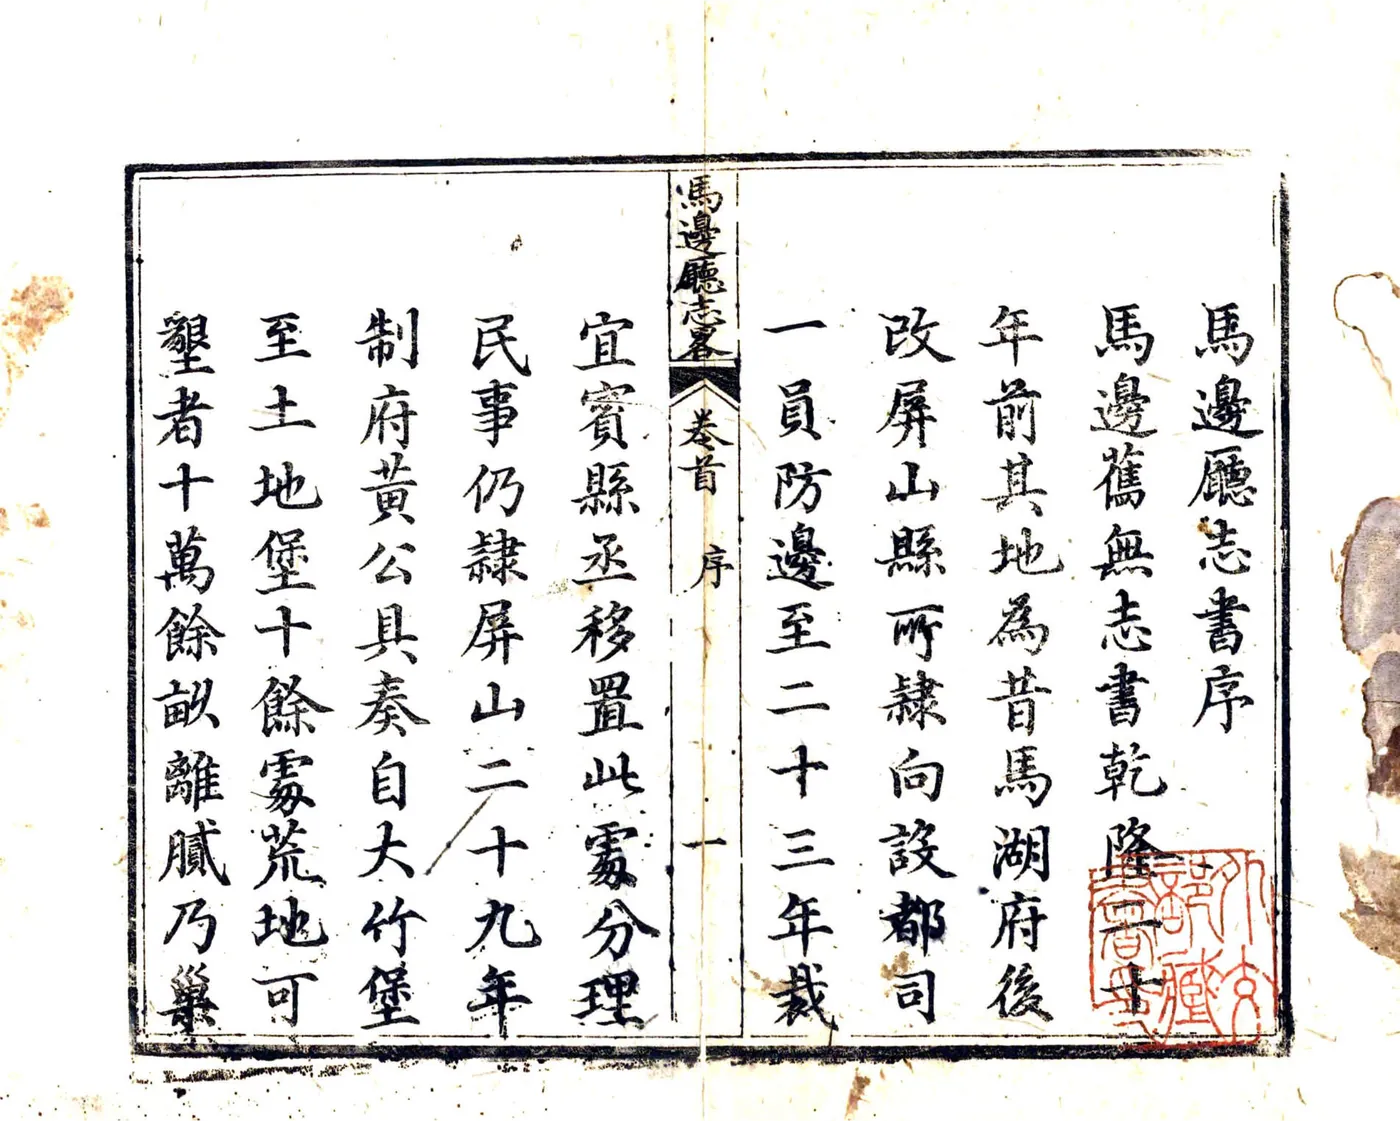 馬邊廳志書序
馬邊舊無志書乾隆二十
年前其地為昔馬湖府後
改屏山縣所隸向設都司
一員防邊至二十三年裁
馮邊廳志畧
卷首
序
一
宜賓縣丞移置此處分理
民事仍隸屏山二十九年
制府黃公具奏自大竹堡
至土地堡十餘處荒地可
墾者十萬餘畝離膩乃巢